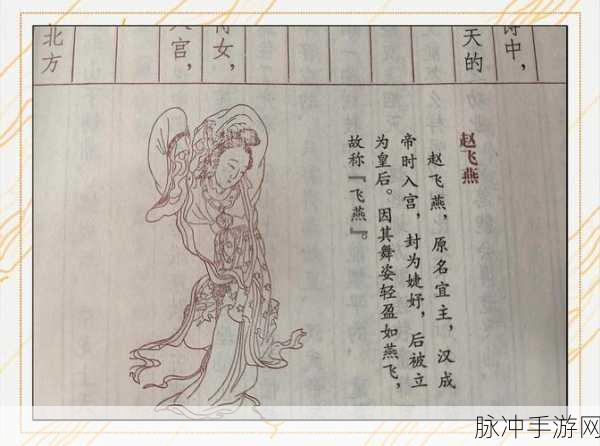 诗中，
天的
待女，
入宫，
北方
赵飞燕
赵飞燕，原名宜主，汉成
帝时入宫，封为婕妤，后被立
为皇后。因其舞姿轻盈如燕飞，
故称『飞燕』。
脉冲手游网